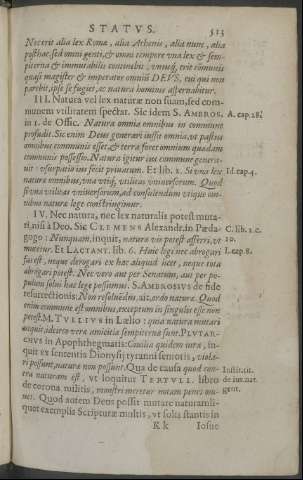 STATVS. 513
Nec erit alia lex Romæ, alia Athenis, alia nunc, alia
posthac, sed omni genti, & omni tempore vna lex & sem-
piterna & immutabilis continebit, vnusq́; erit cõmunis
quasi magister & imperator omniũ DEVS, cui qui non
parebit, ipse se fugiet, ac naturã hominis aspernabitur.
III. Natura vel lex naturæ non suam, sed com-
munem vtilitatem spectat. Sic idem S. AMBROS. A. cap. 28.
in 1. de Offic. Natura omnia omnibus in commune
profudit. Sic enim Deus generari iussit omnia, vt pastus
omnibus communis esset, & terra foret omnium quædam
communis possessio. Natura igitur ius commune genera-
uit: vsurpatio ius fecit priuatum. Et lib. 2. Si vna lex Id. cap. 4.
naturæ omnibus, vna vtiq́; vtilitas vniuersorum. Quod
si vna vtilitas vniuersorum, ad consulendum vtique om-
nibus naturæ lege constringimur.
IV. Nec natura, nec lex naturalis potest muta-
ri, nisi à Deo. Sic CLEMENS Alexandr. in Pæda- C. lib. 2. c.
gogo: Nunquam, inquit, naturæ vis potest afferri, vt 10.
mutetur. Et LACTANT. lib. 6. Huic legi nec abrogari L. cap. 8.
fas est, neque derogari ex hac aliquid licet, neque tota
abrogari potest. Nec vero aut per Senatum, aut per po-
pulum solui hac lege possumus. S. AMBROSIVS de fide
resurrectionis: Non resoluẽdus, ait, ordo naturæ. Quod
enim commune est omnibus, exceptum in singulis esse non
potest. M. TVLLIVS in Lælio: quia natura mutari
nequit, idcirco veræ amicitiæ sempiternæ sunt. PLVTAR-
CHVS in Apophthegmatis: Consilia quidem iura, in-
quit ex sententia Dionysij tyranni senioris, viola-
ri possunt, naturæ non possunt. Qua de causa quod con- Instit. tit.
tra naturam est, vt loquitur TERTVLL. libro de iur. nat.
de corona militis, monstri meretur notam penes om- gent.
nes. Quod autem Deus possit mutare naturam li-
quet exemplis Scripturæ multis, vt solis stantis in
K k Iosue